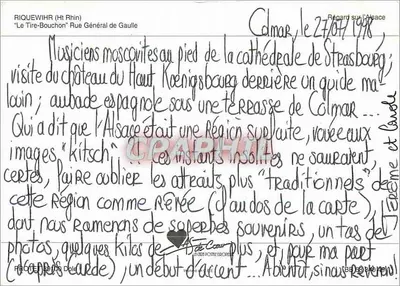 RIQUEWIHR (Ht Rhin)
"Le Tire-Bouchon" Rue Général de Gaulle
Regard sur l'Alsace
Colmar, le 27/07/1998,
Musiciens moscovites au pied de la cathédrale de Strasbourg,
visite du château du Haut Koenigsbourg derrière un guide ma-
louin ; aubade espagnole sous une terrasse de Colmar...
Qui a dit que l'Alsace était une Région surfaite, vouée aux
images "kitsch" ... Les instants insolites ne sauraient,
certes, faire oublier les attraits plus "traditionnels" de
cette Région comme Rêvée (j'au dos de la carte),
dont nous ramenons de superbes souvenirs, un tas de
photos, quelques kilos de plus, et, pour ma part
(d'après Carole), un début d'accent... A bientôt, si nous revenons !
Jérôme et Carole